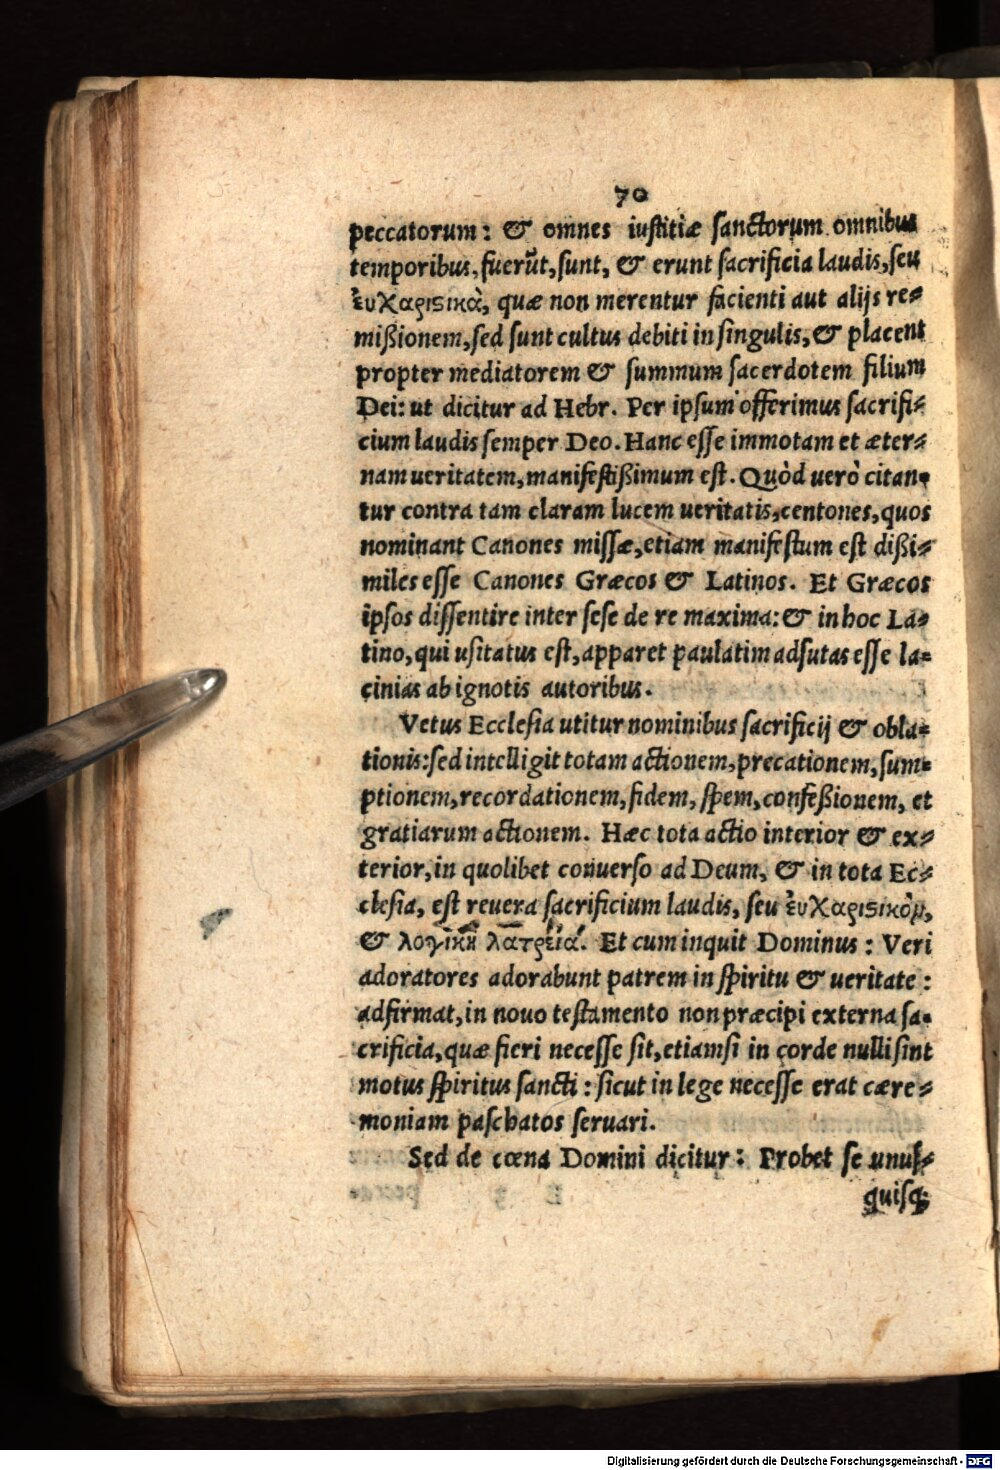 70
peccatorum: & omnes iustitiæ sanctorum omnibus
temporibus, fuerũt, sunt, & erunt sacrificia laudis, seu
ἐυχαριϛικὰ, quæ non merentur facienti aut alijs re-
mißionem, sed sunt cultus debiti in singulis, & placent
propter mediatorem & summum sacerdotem filium
Dei: ut dicitur ad Hebr. Per ipsum offerimus sacrifi-
cium laudis semper Deo. Hanc esse immotam et æter-
nam ueritatem, manifestißimum est. Quòd uerò citan-
tur contra tam claram lucem ueritatis, centones, quos
nominant Canones missæ, etiam manifestum est dißi-
miles esse Canones Græcos & Latinos. Et Græcos
ipsos dissentire inter sese de re maxima: & in hoc La-
tino, qui usitatus est, apparet paulatim adsutas esse la-
cinias ab ignotis autoribus.
Vetus Ecclesia utitur nominibus sacrificij & obla-
tionis: sed intelligit totam actionem, precationem, sum-
ptionem, recordationem, fidem, spem, confeßionem, et
gratiarum actionem. Hæc tota actio interior & ex-
terior, in quolibet conuerso ad Deum, & in tota Ec-
clesia, est reuera sacrificium laudis, seu ἐυχαριϛικὸμ,
& λογικὴ λατρεία. Et cum inquit Dominus: Veri
adoratores adorabunt patrem in spiritu & ueritate:
adfirmat, in nouo testamento non præcipi externa sa-
crificia, quæ fieri necesse sit, etiamsi in corde nulli sint
motus spiritus sancti: sicut in lege necesse erat cære-
moniam paschatos seruari.
Sed de cœna Domini dicitur: Probet se unus-
quisq;
Digitalisierung gefördert durch die Deutsche Forschungsgemeinschaft - DFG